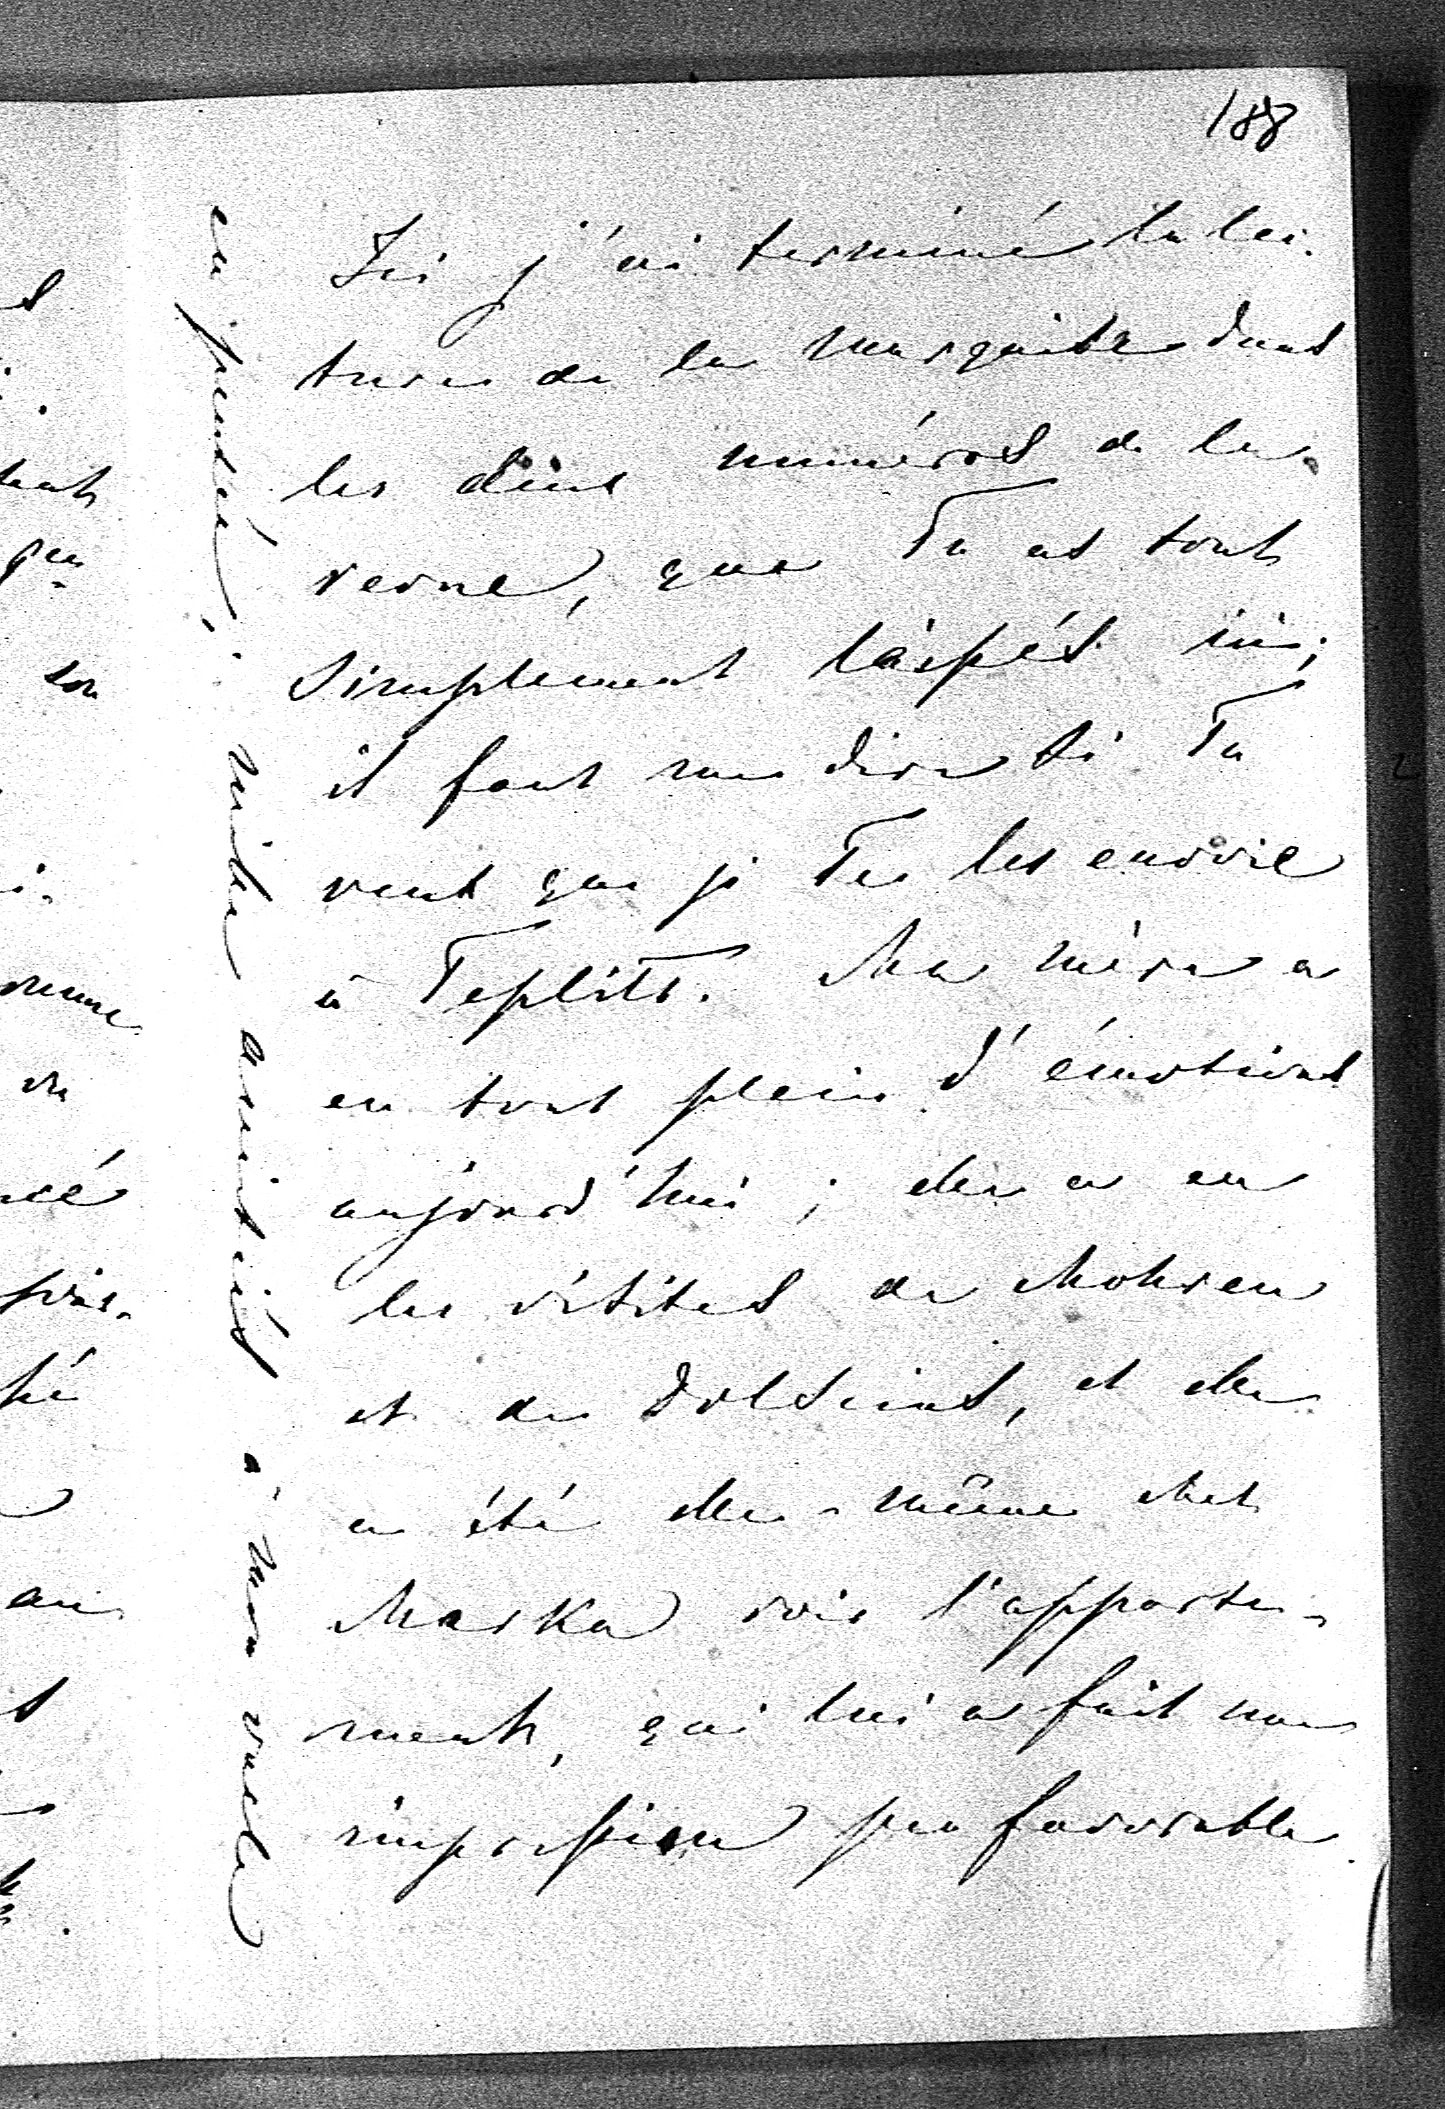 188
Ici j'ai terminé la lec-
ture de la Marquise dans
les deux numéros de la
revue, que Tu as tout
simplement laissés ici;
il faut me dire si Tu
veux que je Te les envoie
à Teplitz. Ma mère a
eu tout plein d'émotions
aujourd'hui; elle a eu
les visites de Mohren
et de Dolscius, et elle
a été elle-même chez
Maska voir l'apparte-
ment, qui lui a fait une
impression peu favorable.
en pensée; mille amitiés à mon oncle